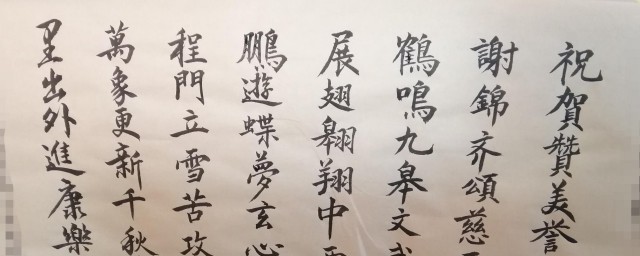 祝賀贊美誉
謝錦齐頌慈
鶴鳴九皋文
展翅翱翔中
鵬遊蝶夢玄心
程門立雪苦攻
萬象更新千秋
里出外進康樂